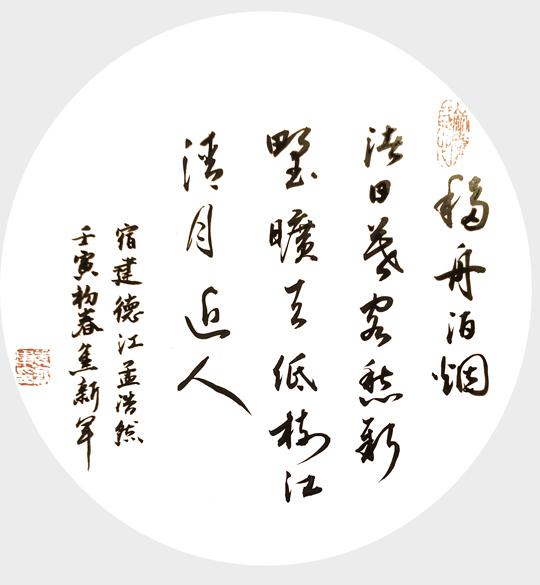 移舟泊烟
渚日暮客愁新
野曠天低树江
清月近人
宿建德江孟浩然
壬寅初春焦新军